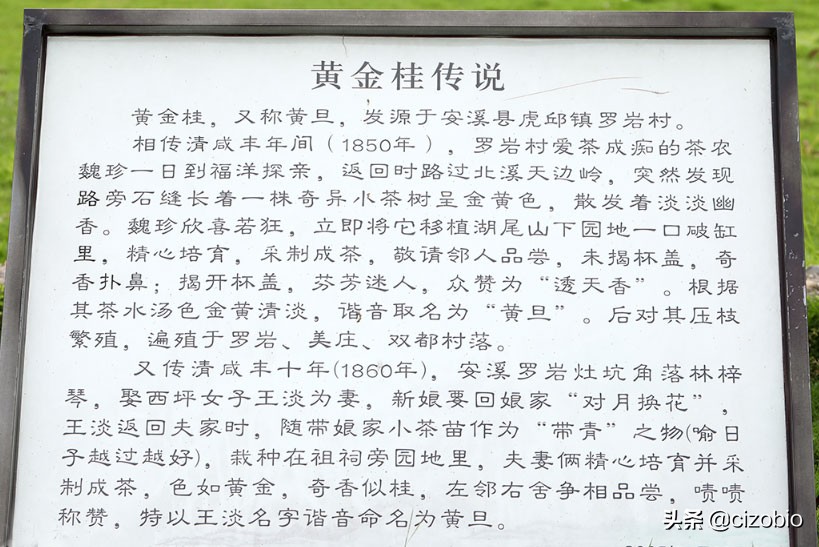 黄金桂传说
黄金桂，又称黄旦，发源于安溪县虎邱镇罗岩村。
相传清咸丰年间（1850年），罗岩村爱茶成痴的茶农
魏珍一日到福洋探亲，返回时路过北溪天边岭，突然发现
路旁石缝长着一株奇异小茶树呈金黄色，散发着淡淡幽
香。魏珍欣喜若狂，立即将它移植湖尾山下园地一口破缸
里，精心培育，采制成茶，敬请邻人品尝，未揭杯盖，奇
香扑鼻；揭开杯盖，芬芳迷人，众赞为“透天香”。根据
其茶水汤色金黄清淡，谐音取名为“黄旦”。后对其压枝
繁殖，遍殖于罗岩、美庄、双都村落。
又传清咸丰十年(1860年)，安溪罗岩灶坑角落林梓
琴，娶西坪女子王淡为妻，新娘要回娘家“对月换花”，
王淡返回夫家时，随带娘家小茶苗作为“带青”之物(喻日
子越过越好)，栽种在祖祠旁园地里，夫妻俩精心培育并采
制成茶，色如黄金，奇香似桂，左邻右舍争相品尝，啧啧
称赞，特以王淡名字谐音命名为黄旦。
头条 @cizobio